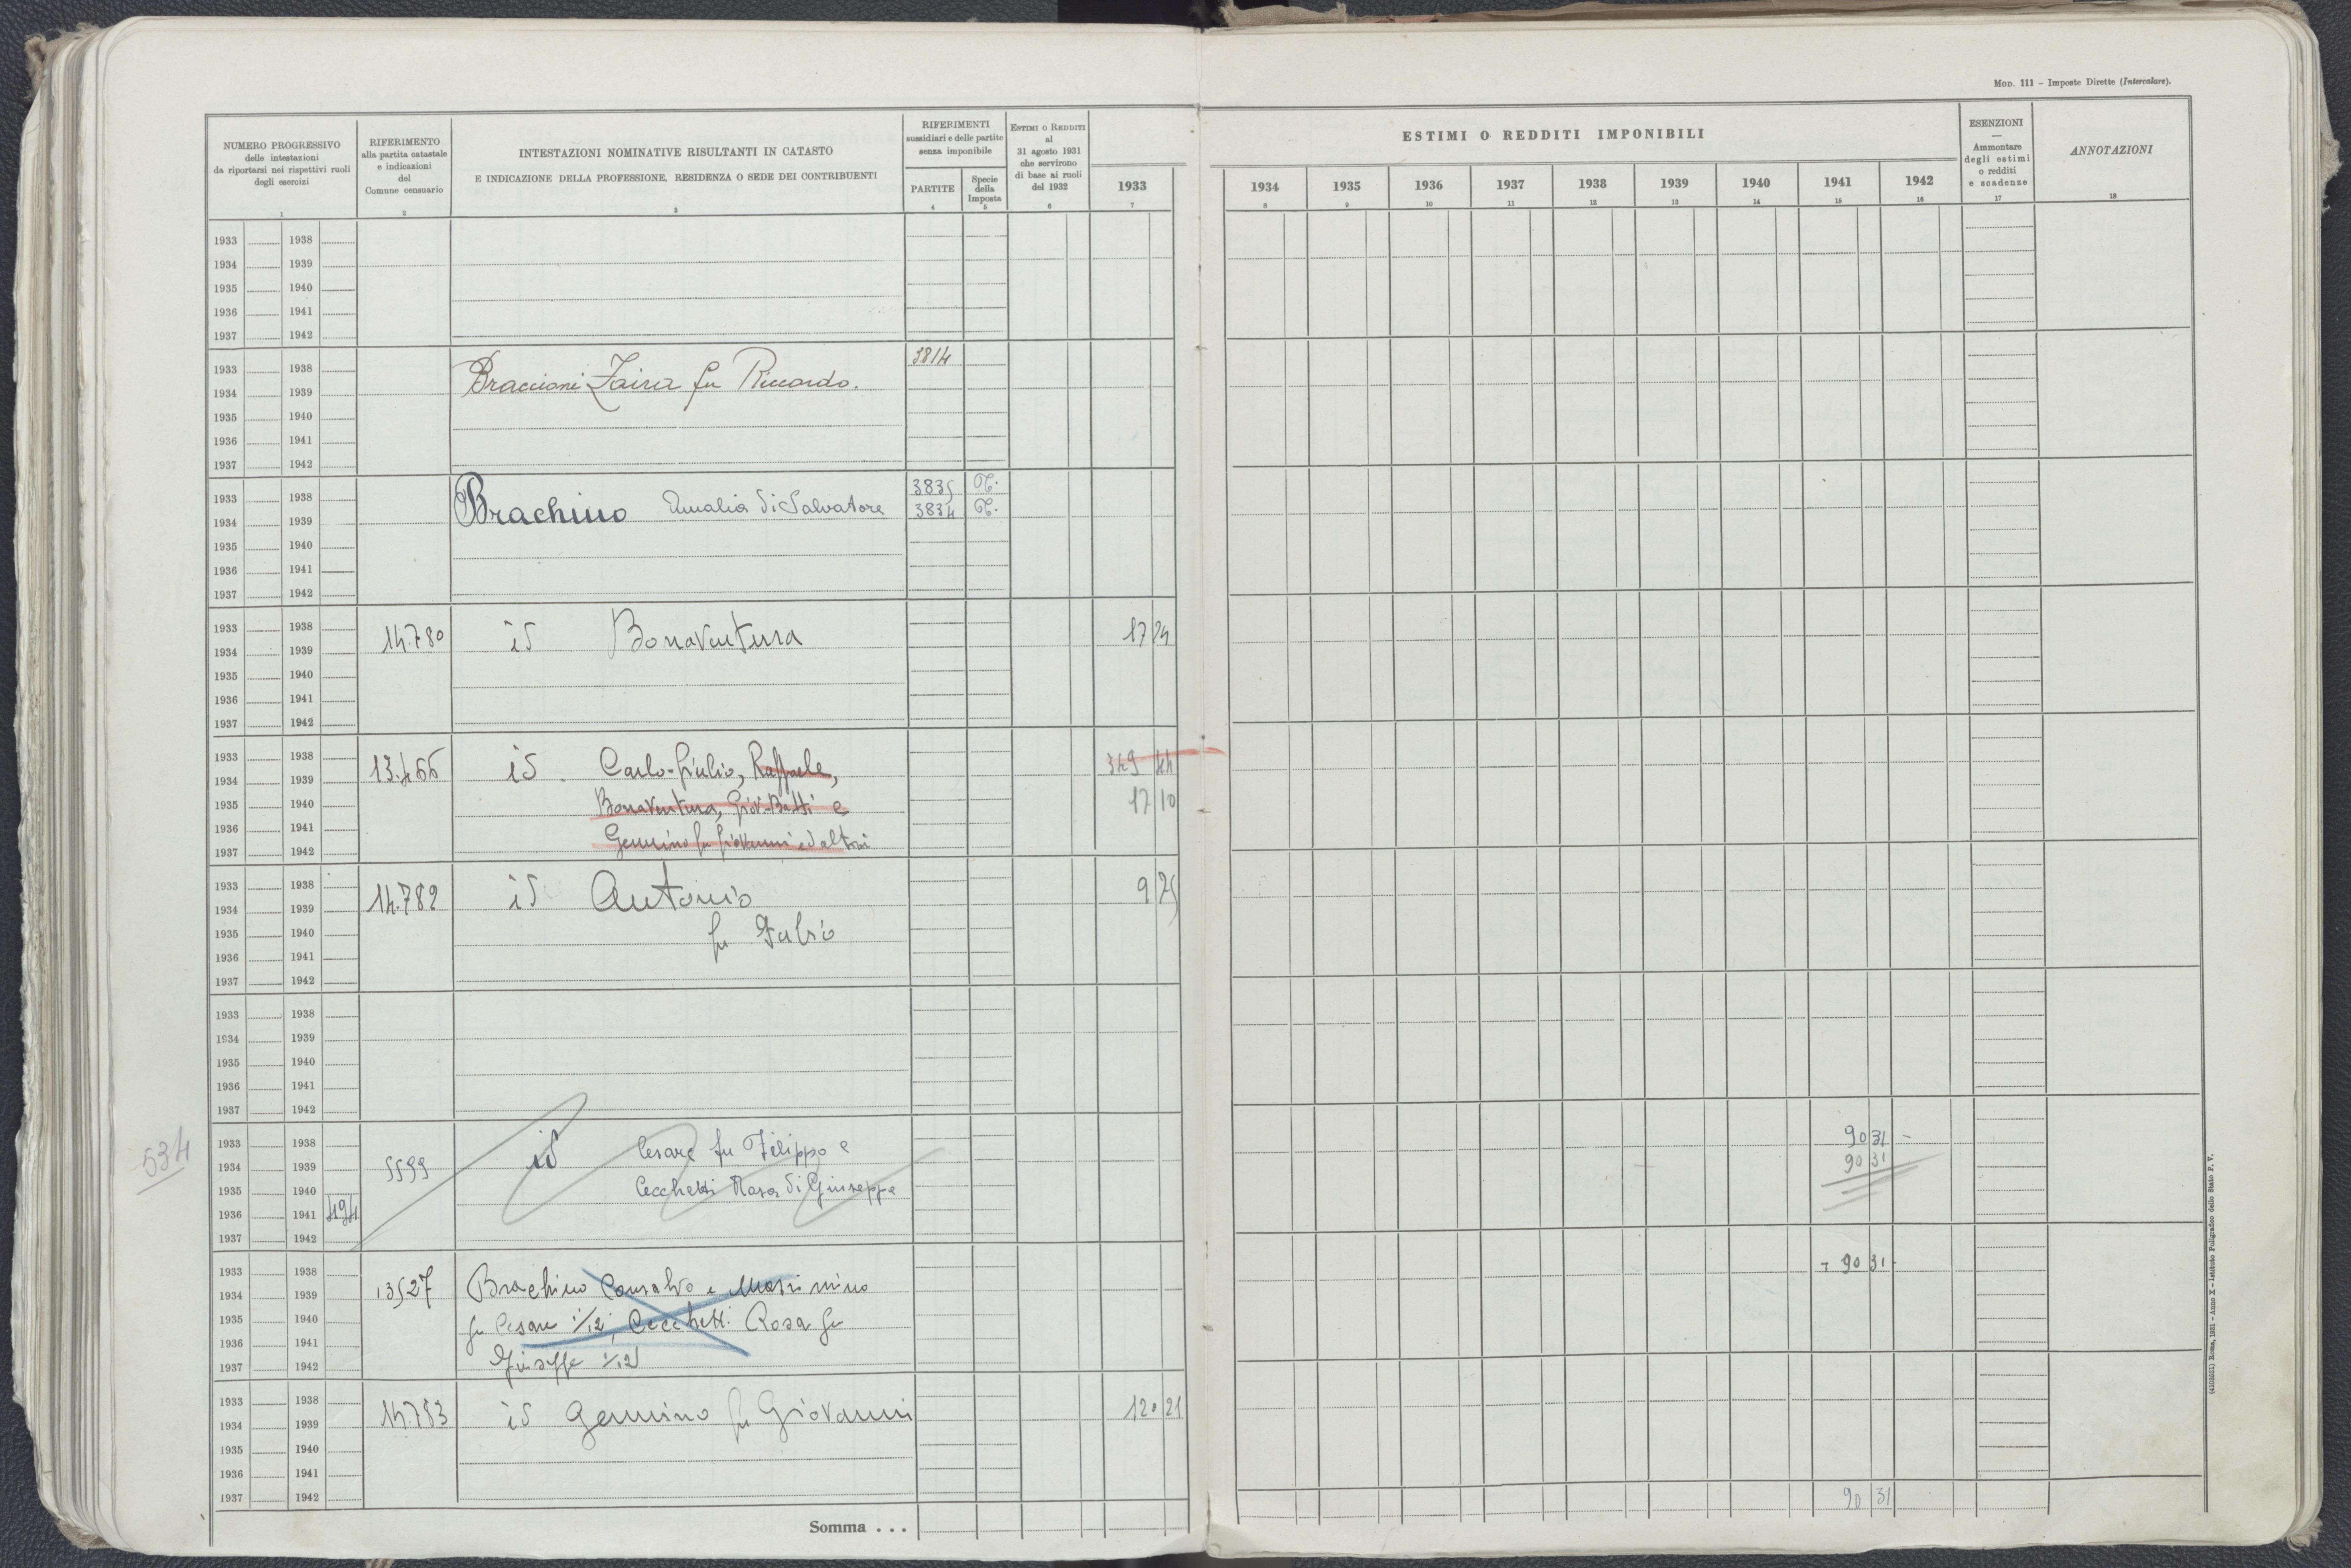 MOD. 111 – Imposte Dirette (Intercalare).
NUMERO PROGRESSIVO
delle intestazioni
da riportarsi nei rispettivi ruoli
degli esercizi
1
RIFERIMENTO
alla partita catastale
e indicazioni
del
Comune censuario
2
INTESTAZIONI NOMINATIVE RISULTANTI IN CATASTO
E INDICAZIONE DELLA PROFESSIONE, RESIDENZA O SEDE DEI CONTRIBUENTI
3
RIFERIMENTI
sussidiari e delle partite
senza imponibile
PARTITE
4
Specie
della
Imposta
5
ESTIMI O REDDITI
al
31 agosto 1931
che servirono
di base ai ruoli
del 1932
6
1933
7
ESTIMI O REDDITI IMPONIBILI
1934 1935 1936 1937 1938 1939 1940 1941 1942
8 9 10 11 12 13 14 15 16
ESENZIONI
—
Ammontare
degli estimi
o redditi
e scadenze
17
ANNOTAZIONI
18
1933 1938
1934 1939
1935 1940
1936 1941
1937 1942
1933 1938 3814
1934 1939 Braccioni Zaira fu Riccardo.
1935 1940
1936 1941
1937 1942
1933 1938 3835 T.
1934 1939 Brachino Amalia di Salvatore 3834 T.
1935 1940
1936 1941
1937 1942
1933 1938
1934 1939 14.780 id Bonaventura 17 24
1935 1940
1936 1941
1937 1942
1933 1938
1934 1939 13.466 id. Carlo-Giulio, Raffaele, 349 44
1935 1940 Bonaventura, Giov-Batti e 17 10
1936 1941
1937 1942 Gennino fu Giovanni ed altri
1933 1938
1934 1939 14.782 id Antonio 9 25
1935 1940 fu Fulvio
1936 1941
1937 1942
1933 1938
1934 1939
1935 1940
1936 1941
1937 1942
534
1933 1938 id Cesare fu Filippo e 90 31 -
1934 1939 5599 90 31
1935 1940 Cecchetti Rosa di Giuseppe
1936 1941 494
1937 1942
1933 1938 - 90 31 -
1934 1939 13527 Brachino Consalvo e Massimino
1935 1940 fu Cesare 1/12, Cecchetti Rosa fu
1936 1941
1937 1942 Giuseppe 1/12
1933 1938
1934 1939 14.783 id Gennino fu Giovanni 120 21
1935 1940
1936 1941
1937 1942
Somma . . . 90 31
(4103551) Roma, 1931 - Anno X - Istituto Poligrafico dello Stato P. V.